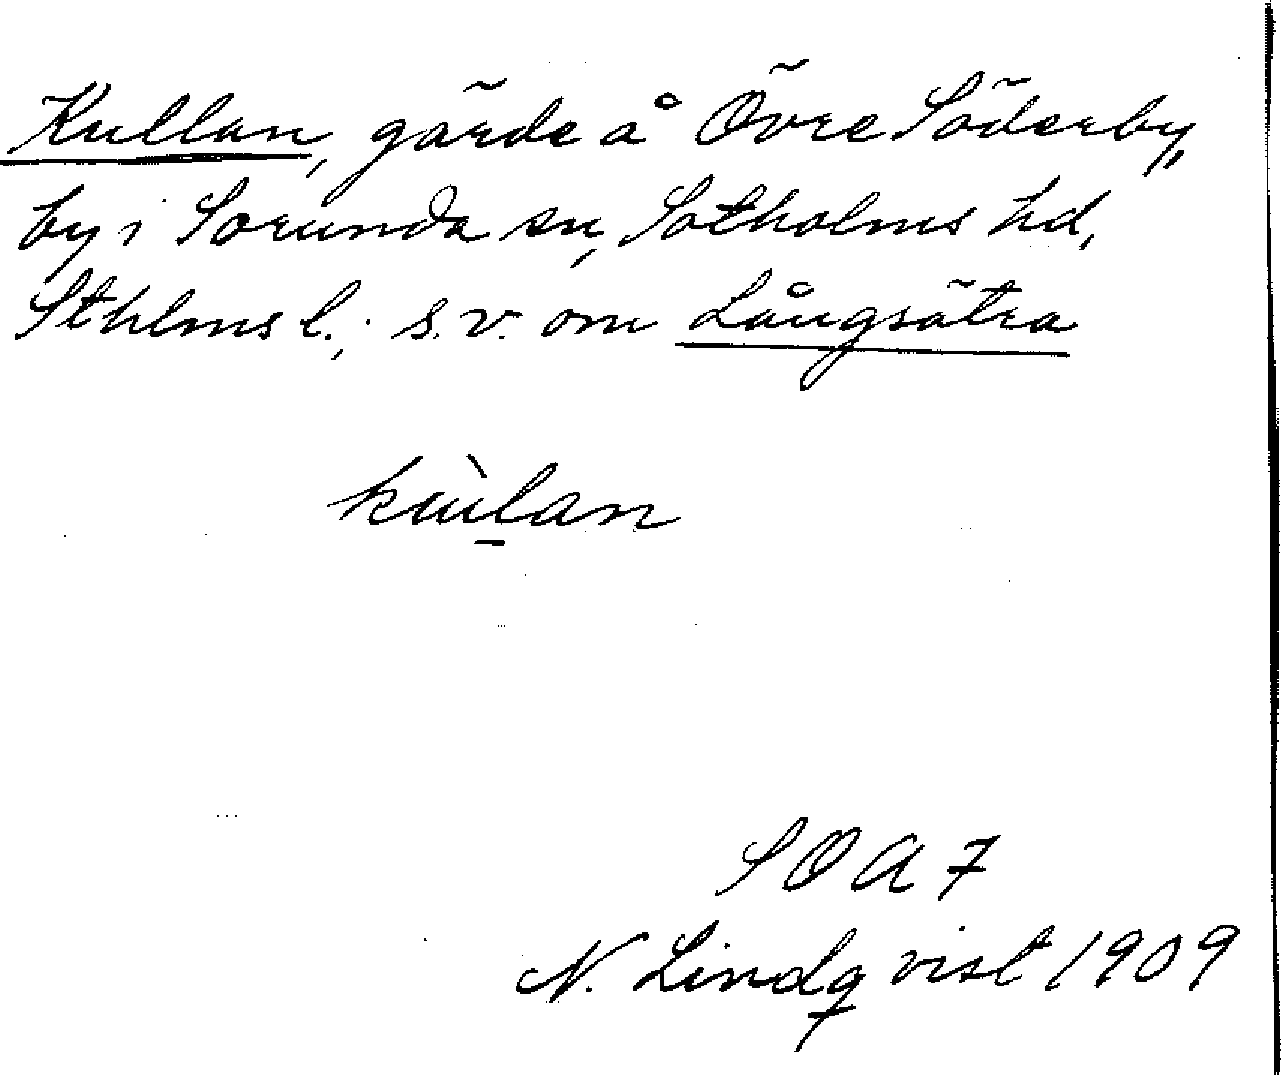 Kullan, gärde å Övre Söderby,
by i Sorunda sn, Sotholms hd,
Sthlms l.; s.v. om Långsätra
kùlan
SOA 7
N. Lindqvist 1909